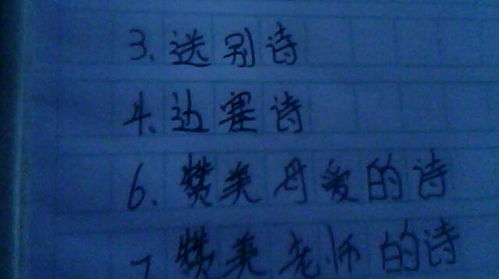 3.送别诗
4.边塞诗
6.赞美母爱的诗
7.赞美老师的诗